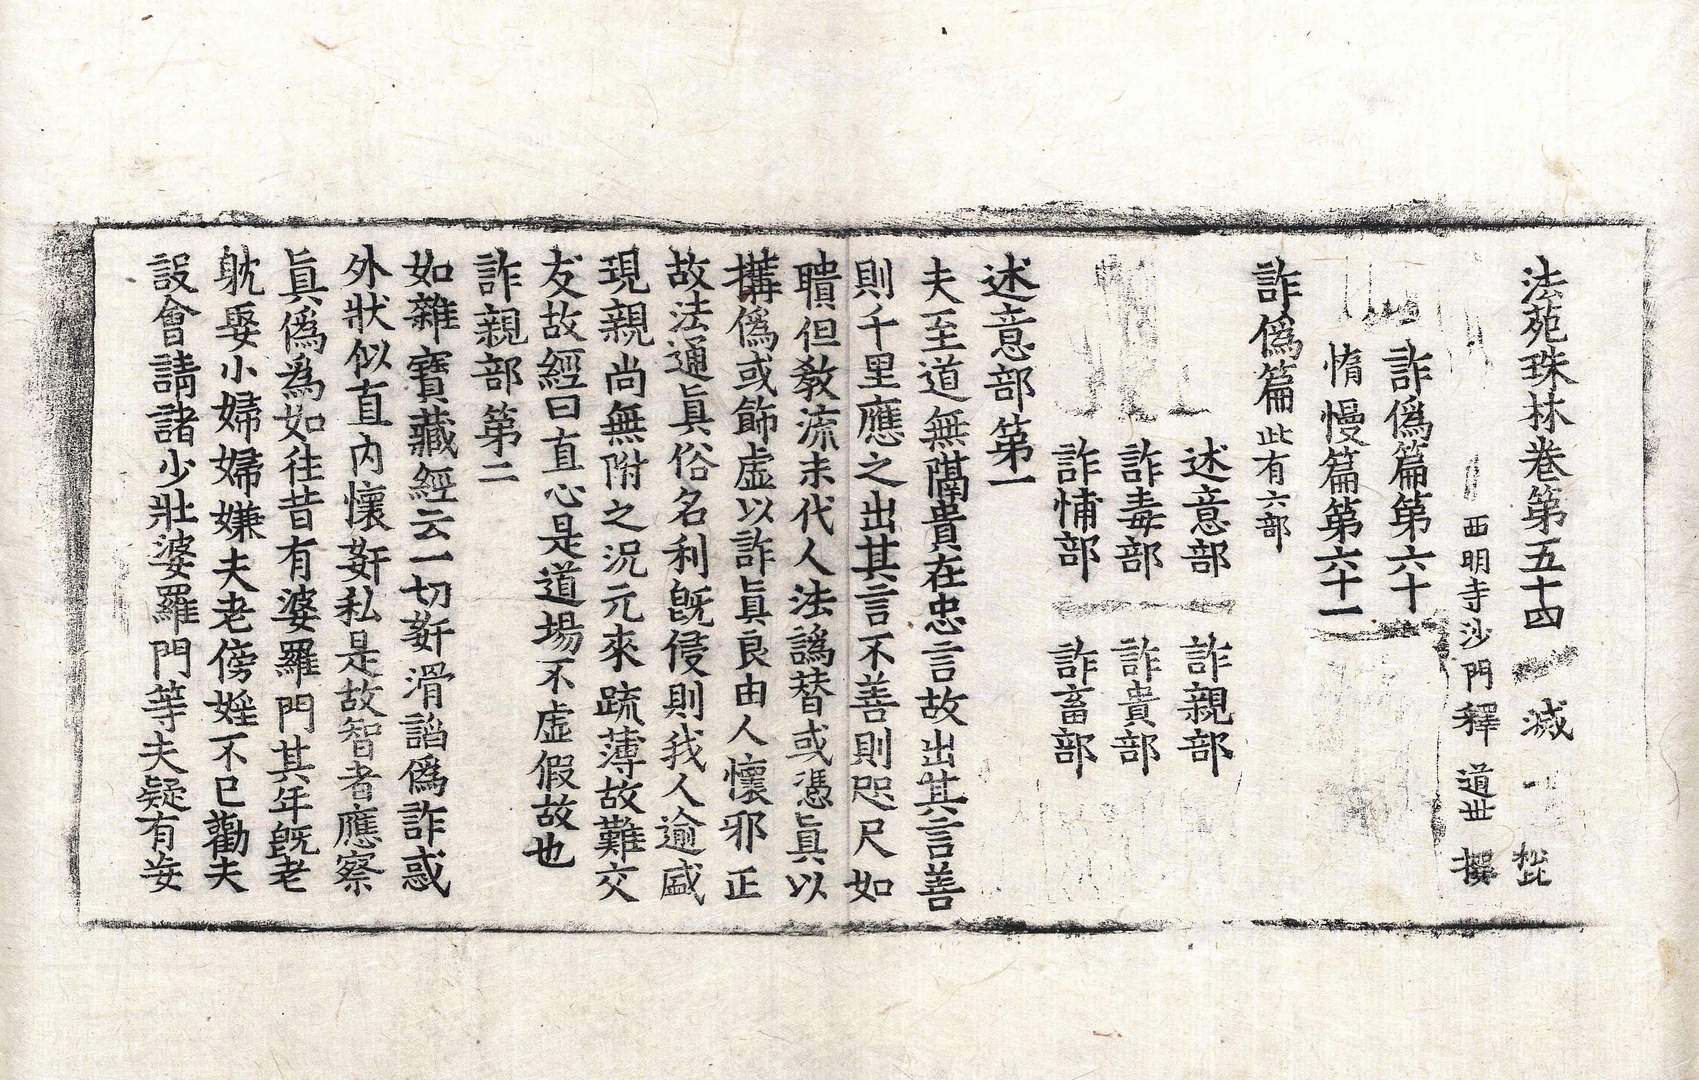 法苑珠林卷第五十四 㓕
西明寺沙門釋 道世 撰
詐僞篇第六十
惰慢篇第六十一
詐僞篇此有六部
述意部 詐親部
詐毒部 詐貴部
詐怖部 詐畜部
述意部第一
夫至道無隔貴在忠言故出其言善
則千里應之出其言不善則咫尺如
聵但敎流末代人法譌替或憑眞以
搆僞或飾虛以詐眞良由人懷邪正
故法通眞俗名利旣侵則我人逾盛
現親尚無附之况元來疏薄故難交
友故經曰直心是道場不虛假故也
詐親部第二
如雜寶藏經云一切姧滑諂僞詐惑
外狀似直内懷姧私是故智者應察
眞僞爲如往昔有婆羅門其年旣老
躭娶小婦婦嫌夫老傍婬不已勸夫
設會請諸少壯婆羅門等夫疑有姧